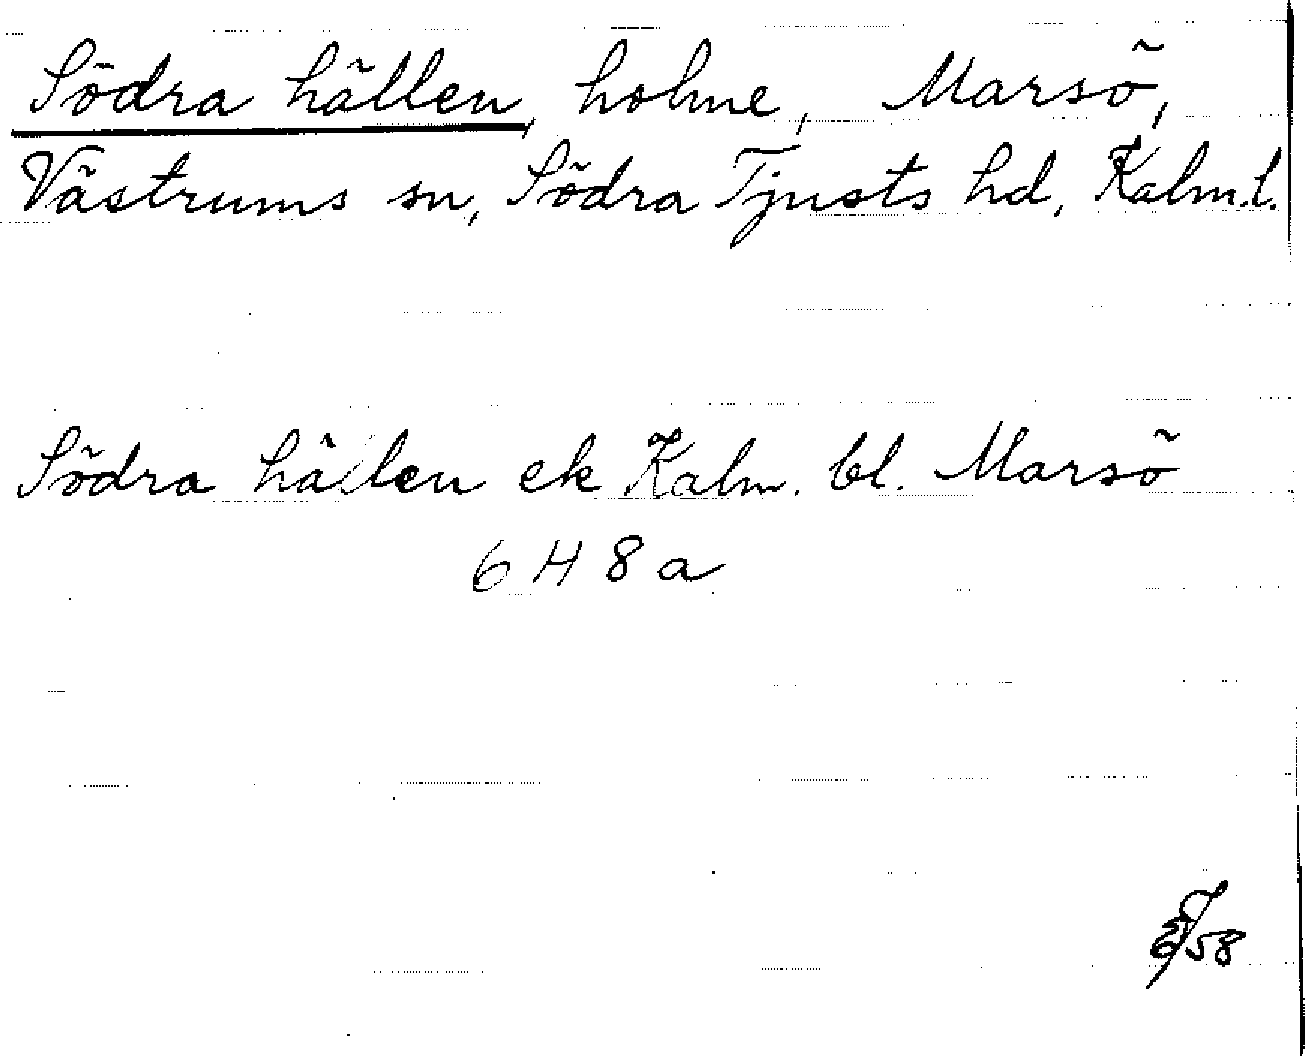 Södra hällen, holme, Marsö,
Västrums sn, Södra Tjusts hd, Kalm.l.
Södra hällen ek Kalm. bl. Marsö
6 H 8 a
58